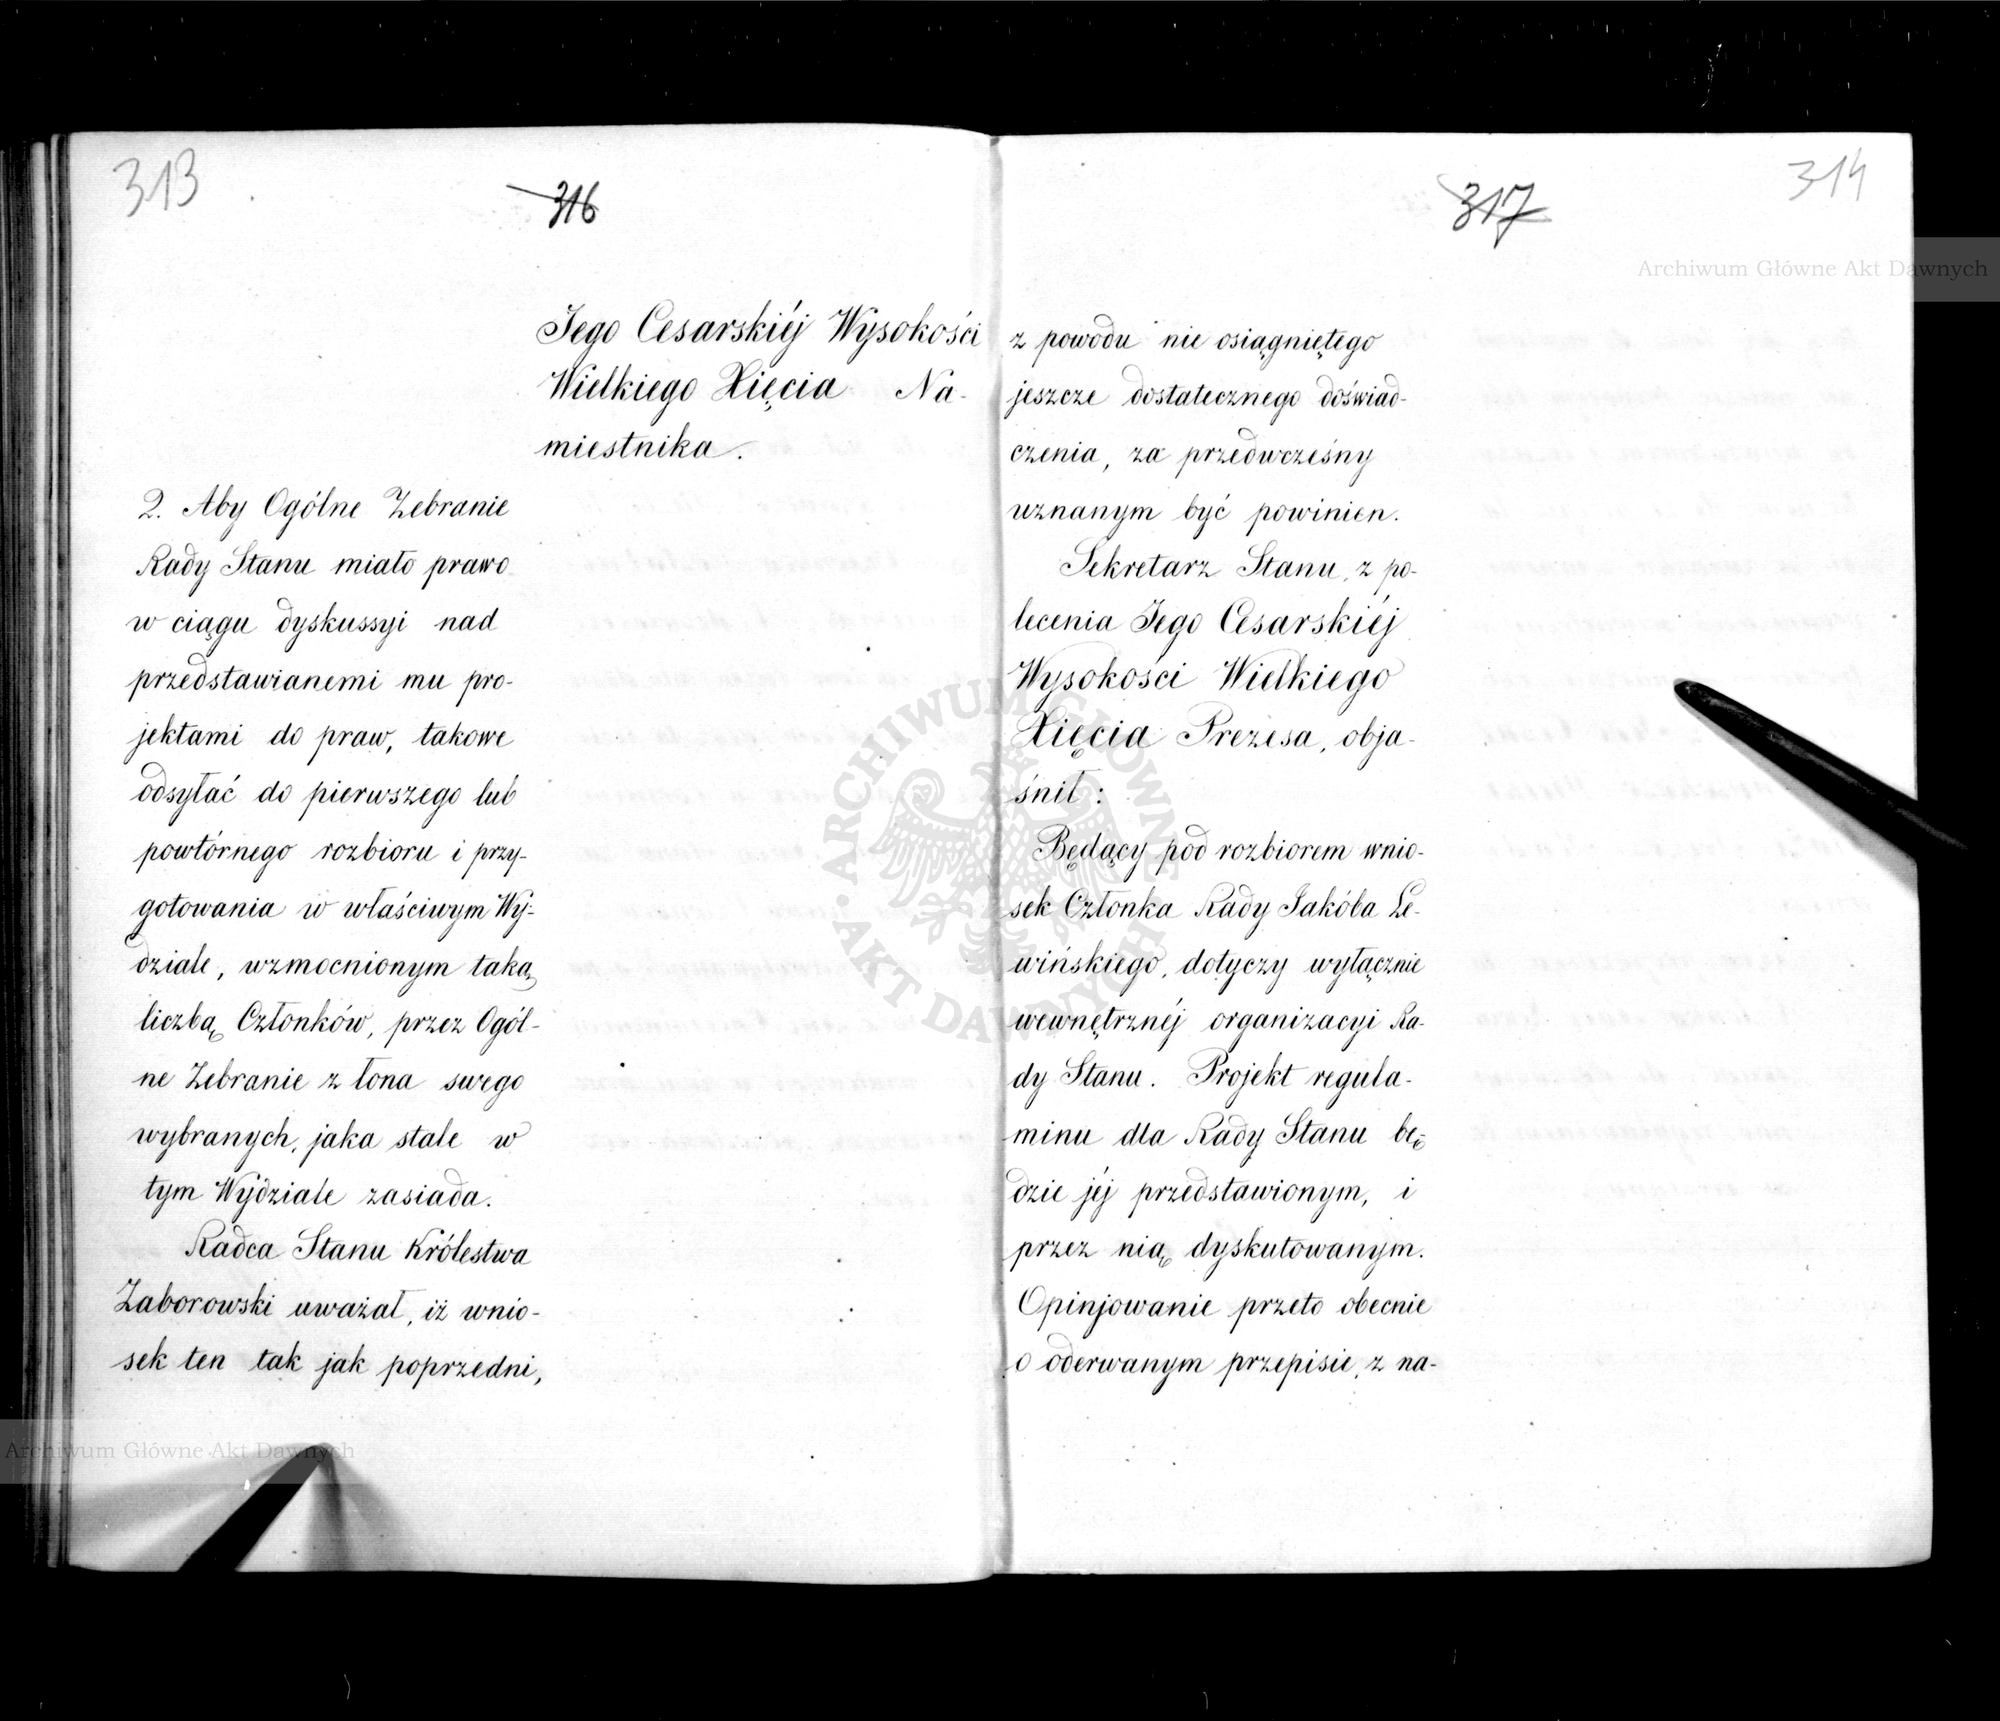 313
316
Jego Cesarskiéj Wysokości
Wielkiego Xięcia Na-
miestnika.
2. Aby Ogólne Zebranie
Rady Stanu miało prawo
w ciągu dyskussyi nad
przedstawianemi mu pro-
jektami do praw, takowe
odsyłać do pierwszego lub
powtórnego rozbioru i przy-
gotowania w właściwym Wy-
dziale, wzmocnionym taką
liczbą Członków, przez Ogól-
ne Zebranie z łona swego
wybranych, jaka stale w
tym Wydziale zasiada.
Radca Stanu Królestwa
Zaborowski uważał, iż wnio-
sek ten tak jak poprzedni,
Archiwum Główne Akt Dawnych
317
314
Archiwum Główne Akt Dawnych
z powodu nie osiągniętego
jeszcze dostatecznego doświad-
czenia, za przedwczesny
uznanym być powinien.
Sekretarz Stanu, z po-
lecenia Jego Cesarskiéj
Wysokości Wielkiego
Xięcia Prezesa, obja-
śnił:
Będący pod rozbiorem wnio-
sek Członka Rady Jakóba Le-
wińskiego, dotyczy wyłącznie
wewnętrznéj organizacyi Ra-
dy Stanu. Projekt regula-
minu dla Rady Stanu bę-
dzie jéj przedstawionym, i
przez nią dyskutowanym.
Opinjowanie przeto obecnie
o oderwanym przepisie, z na-
ARCHIWUM GŁÓWNE
AKT DAWNYCH